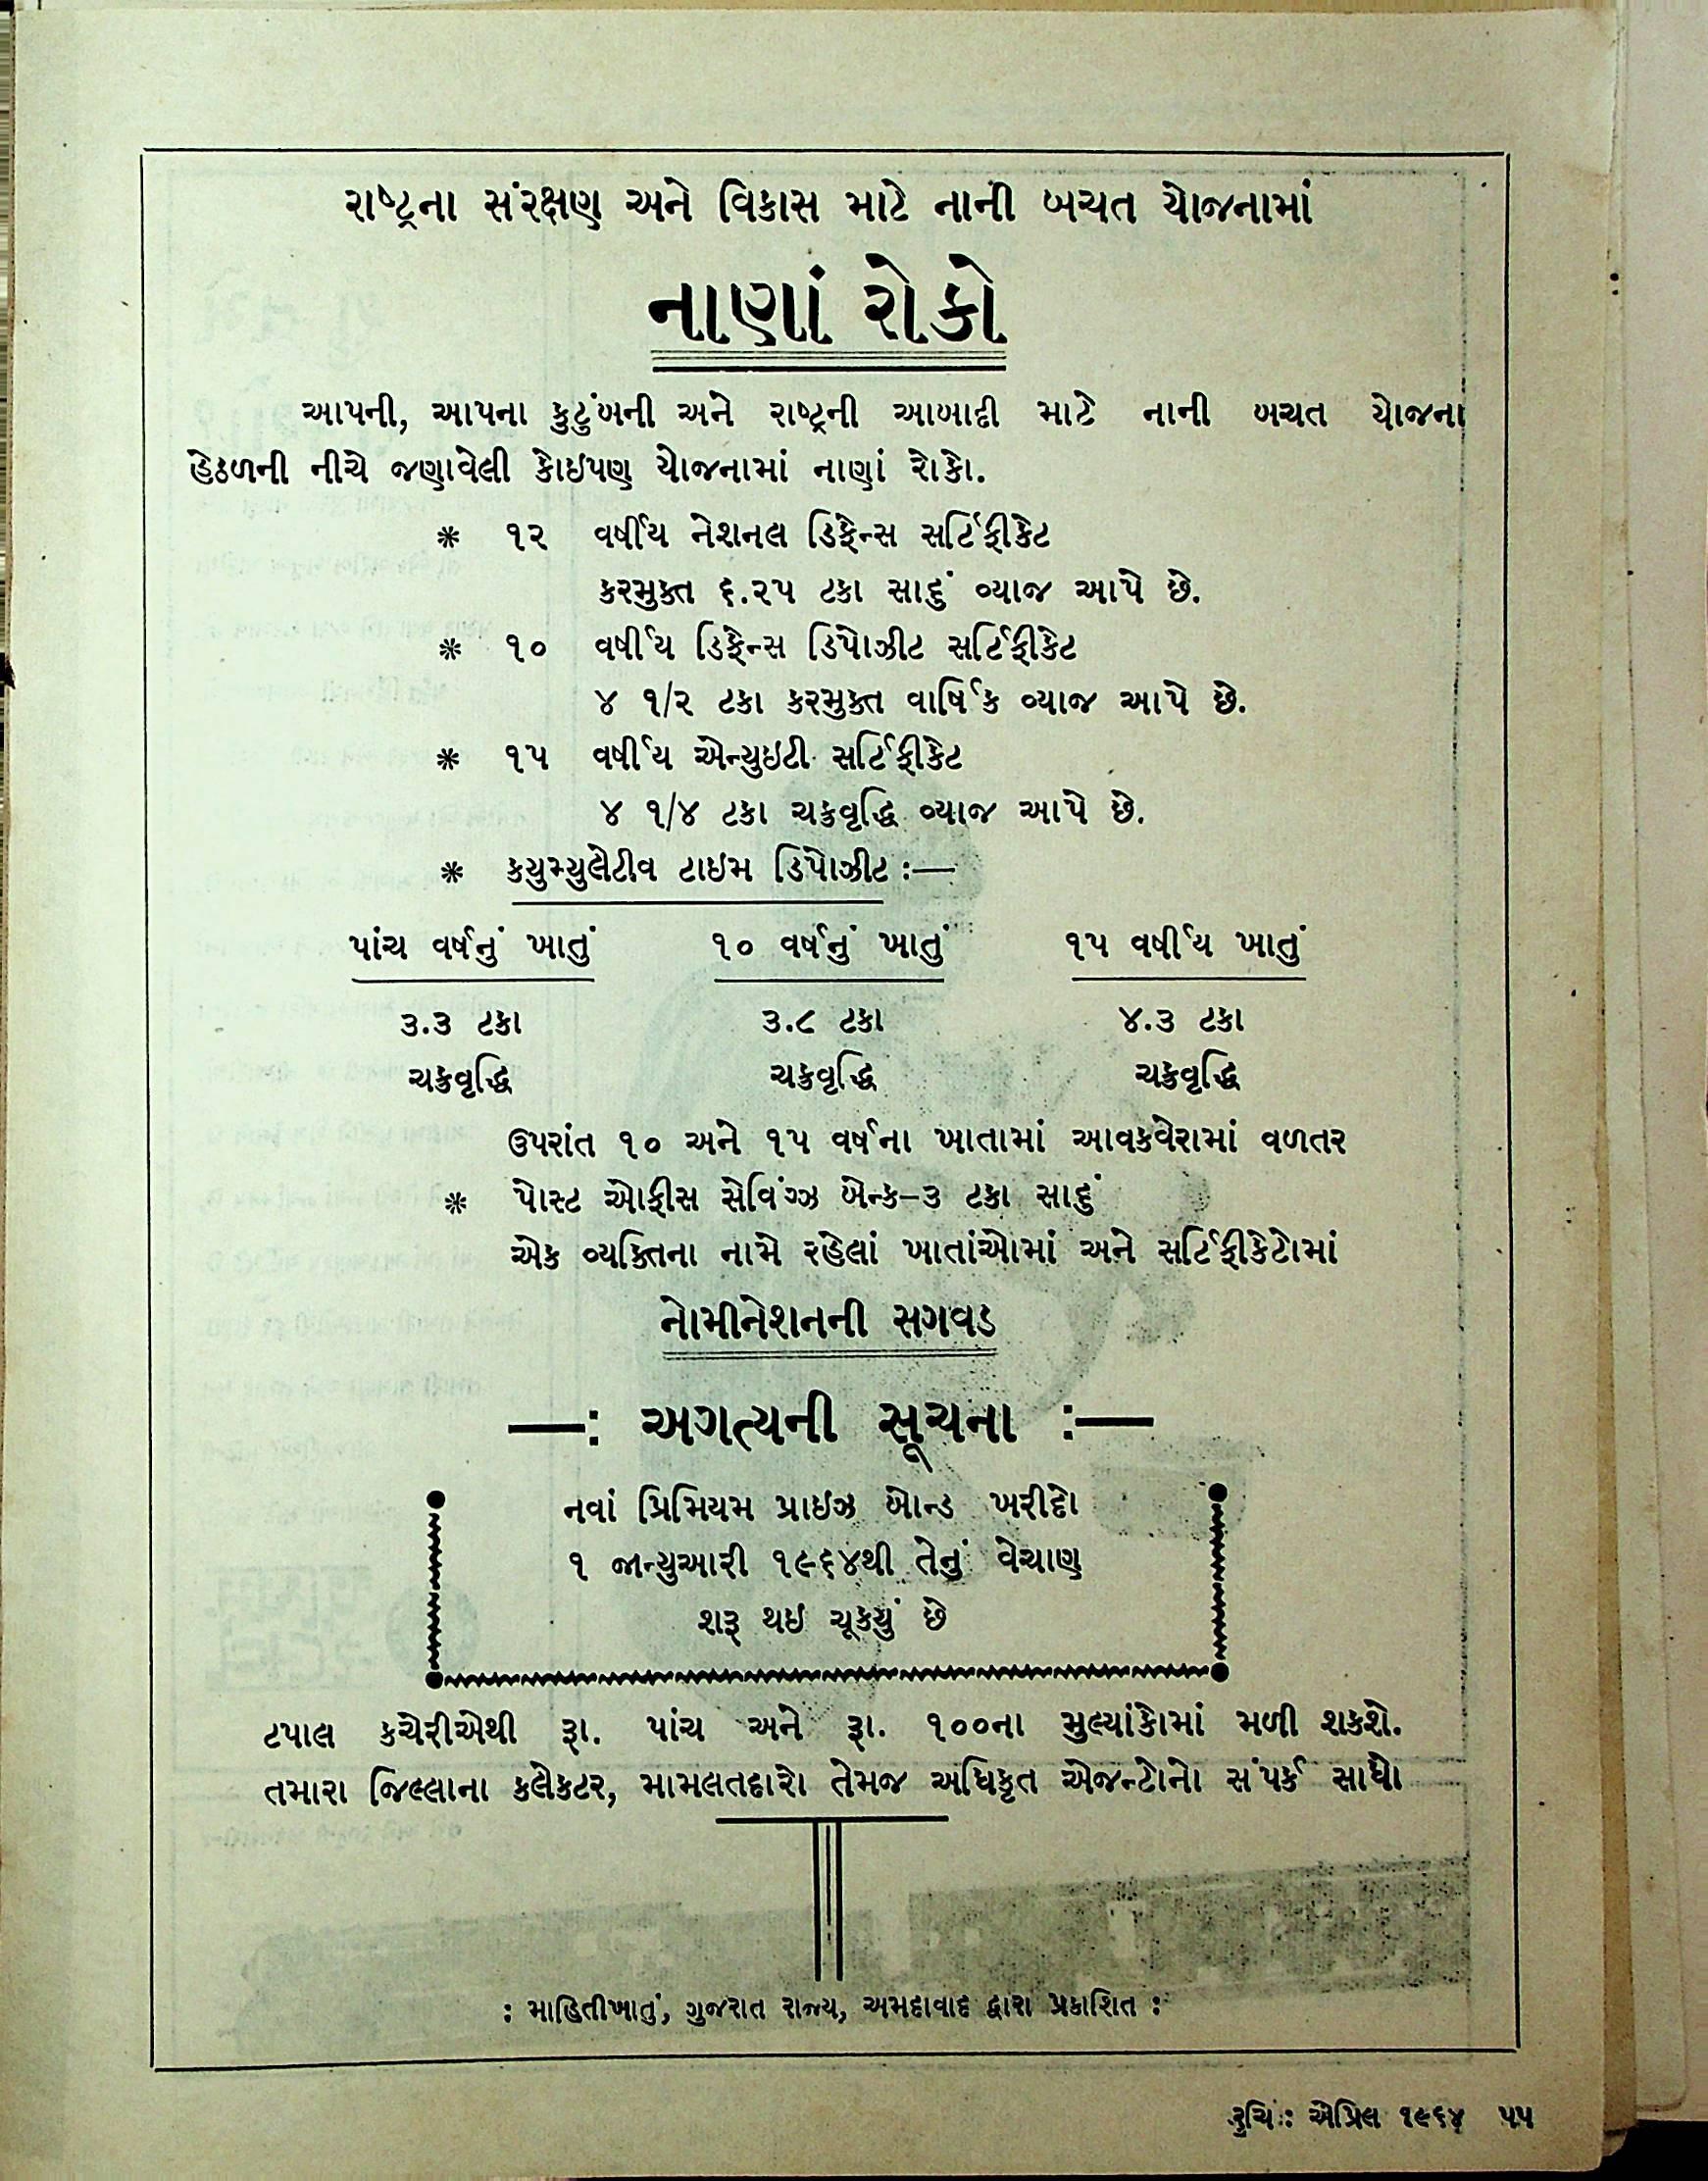 રાષ્ટ્રના સંરક્ષણ અને વિકાસ માટે નાની બચત યોજનામાં
નાણાં રોકો
આપની, આપના કુટુંબની અને રાષ્ટ્રની આબાદી માટે નાની બચત યોજના
હેઠળની નીચે જણાવેલી કોઇપણ યોજનામાં નાણાં રોકો.
* ૧૨ વર્ષીય નેશનલ ડિફેન્સ સર્ટિફીકેટ
કરમુક્ત ૬.૨૫ ટકા સાદું વ્યાજ આપે છે.
* ૧૦ વર્ષીય ડિફેન્સ ડિપોઝીટ સર્ટિફીકેટ
૪ ૧/૨ ટકા કરમુક્ત વાર્ષિક વ્યાજ આપે છે.
* ૧૫ વર્ષીય એન્યુઇટી સર્ટિફીકેટ
૪ ૧/૪ ટકા ચક્રવૃદ્ધિ વ્યાજ આપે છે.
* ક્યુમ્યુલેટીવ ટાઇમ ડિપોઝીટ :—
પાંચ વર્ષનું ખાતું ૧૦ વર્ષનું ખાતું ૧૫ વર્ષીય ખાતું
૩.૩ ટકા ૩.૮ ટકા ૪.૩ ટકા
ચક્રવૃદ્ધિ ચક્રવૃદ્ધિ ચક્રવૃદ્ધિ
ઉપરાંત ૧૦ અને ૧૫ વર્ષના ખાતામાં આવકવેરામાં વળતર
* પોસ્ટ ઓફીસ સેવિંગ્ઝ બેન્ક–૩ ટકા સાદું
એક વ્યક્તિના નામે રહેલાં ખાતાંઓમાં અને સર્ટિફીકેટોમાં
નોમીનેશનની સગવડ
—: અગત્યની સૂચના :—
નવાં પ્રિમિયમ પ્રાઇઝ બોન્ડ ખરીદો
૧ જાન્યુઆરી ૧૯૬૪થી તેનું વેચાણ
શરૂ થઇ ચૂક્યું છે
ટપાલ કચેરીએથી રૂા. પાંચ અને રૂા. ૧૦૦ના મુલ્યાંકોમાં મળી શકશે.
તમારા જિલ્લાના કલેકટર, મામલતદારો તેમજ અધિકૃત એજન્ટોનો સંપર્ક સાધો
: માહિતીખાતું, ગુજરાત રાજ્ય, અમદાવાદ દ્વારા પ્રકાશિત :
રુચિ : એપ્રિલ ૧૯૬૪ ૫૫